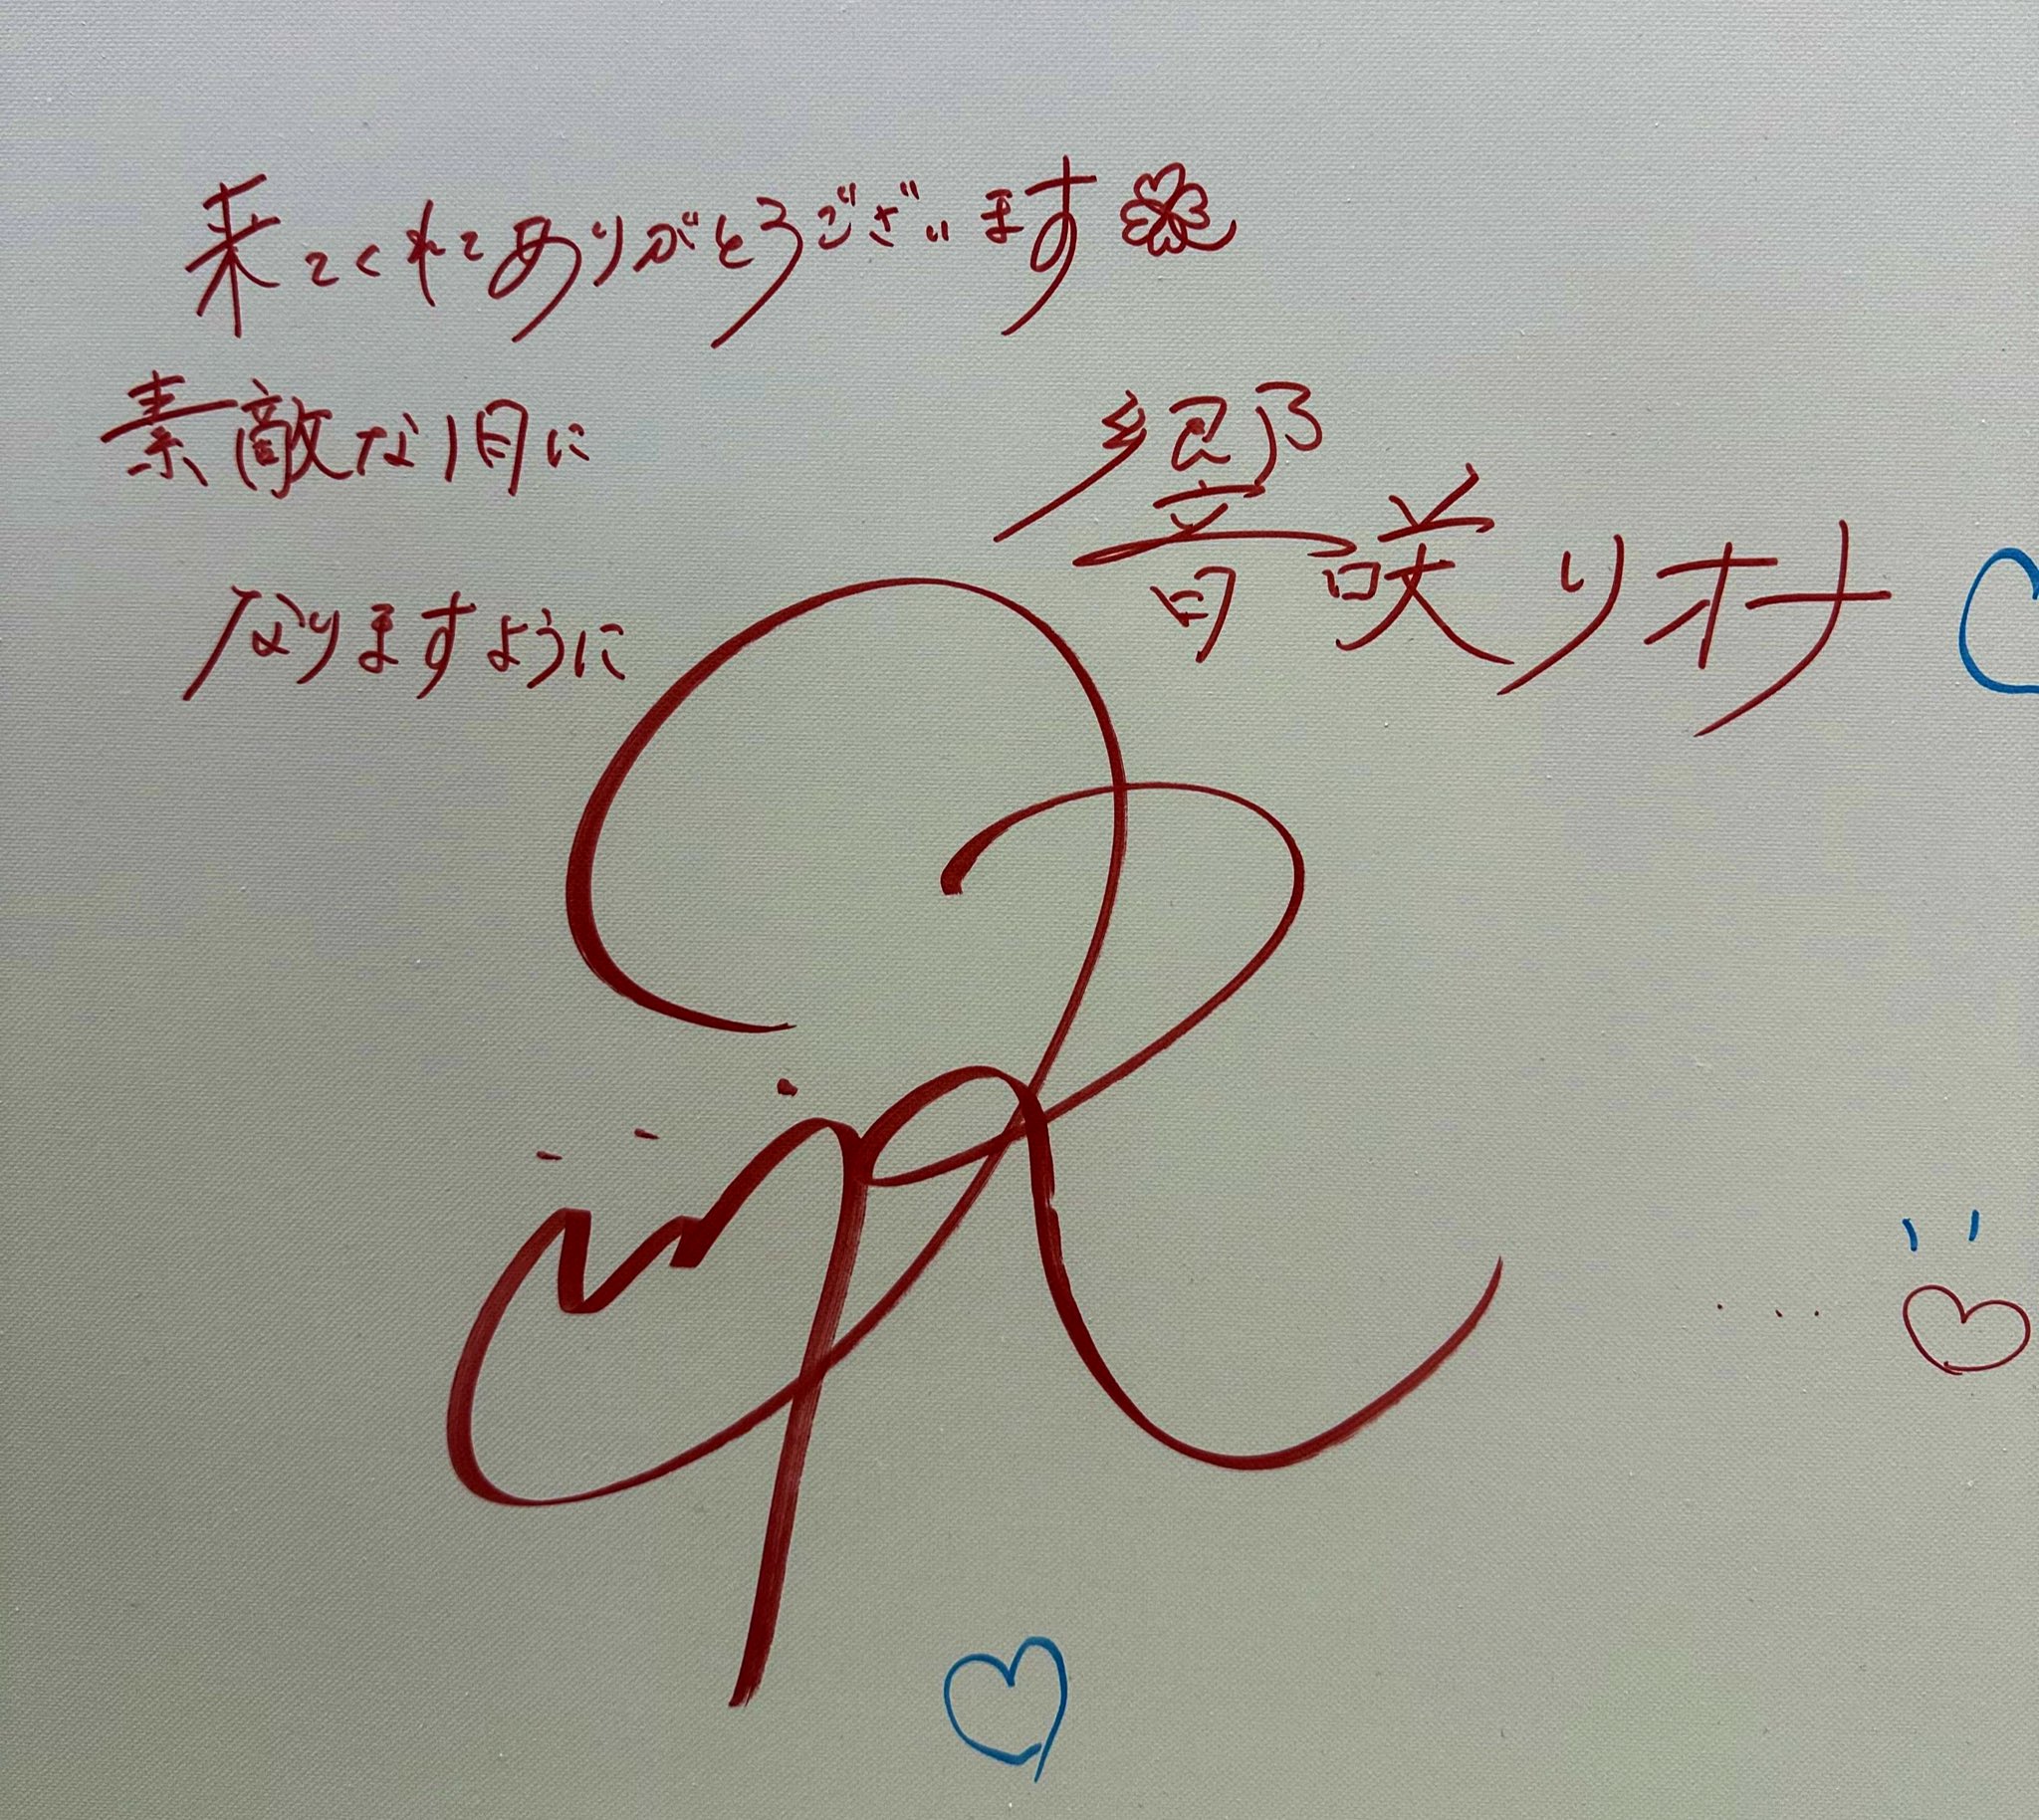 来てくれてありがとうございます
素敵な1日に
なりますように
響咲リオナ